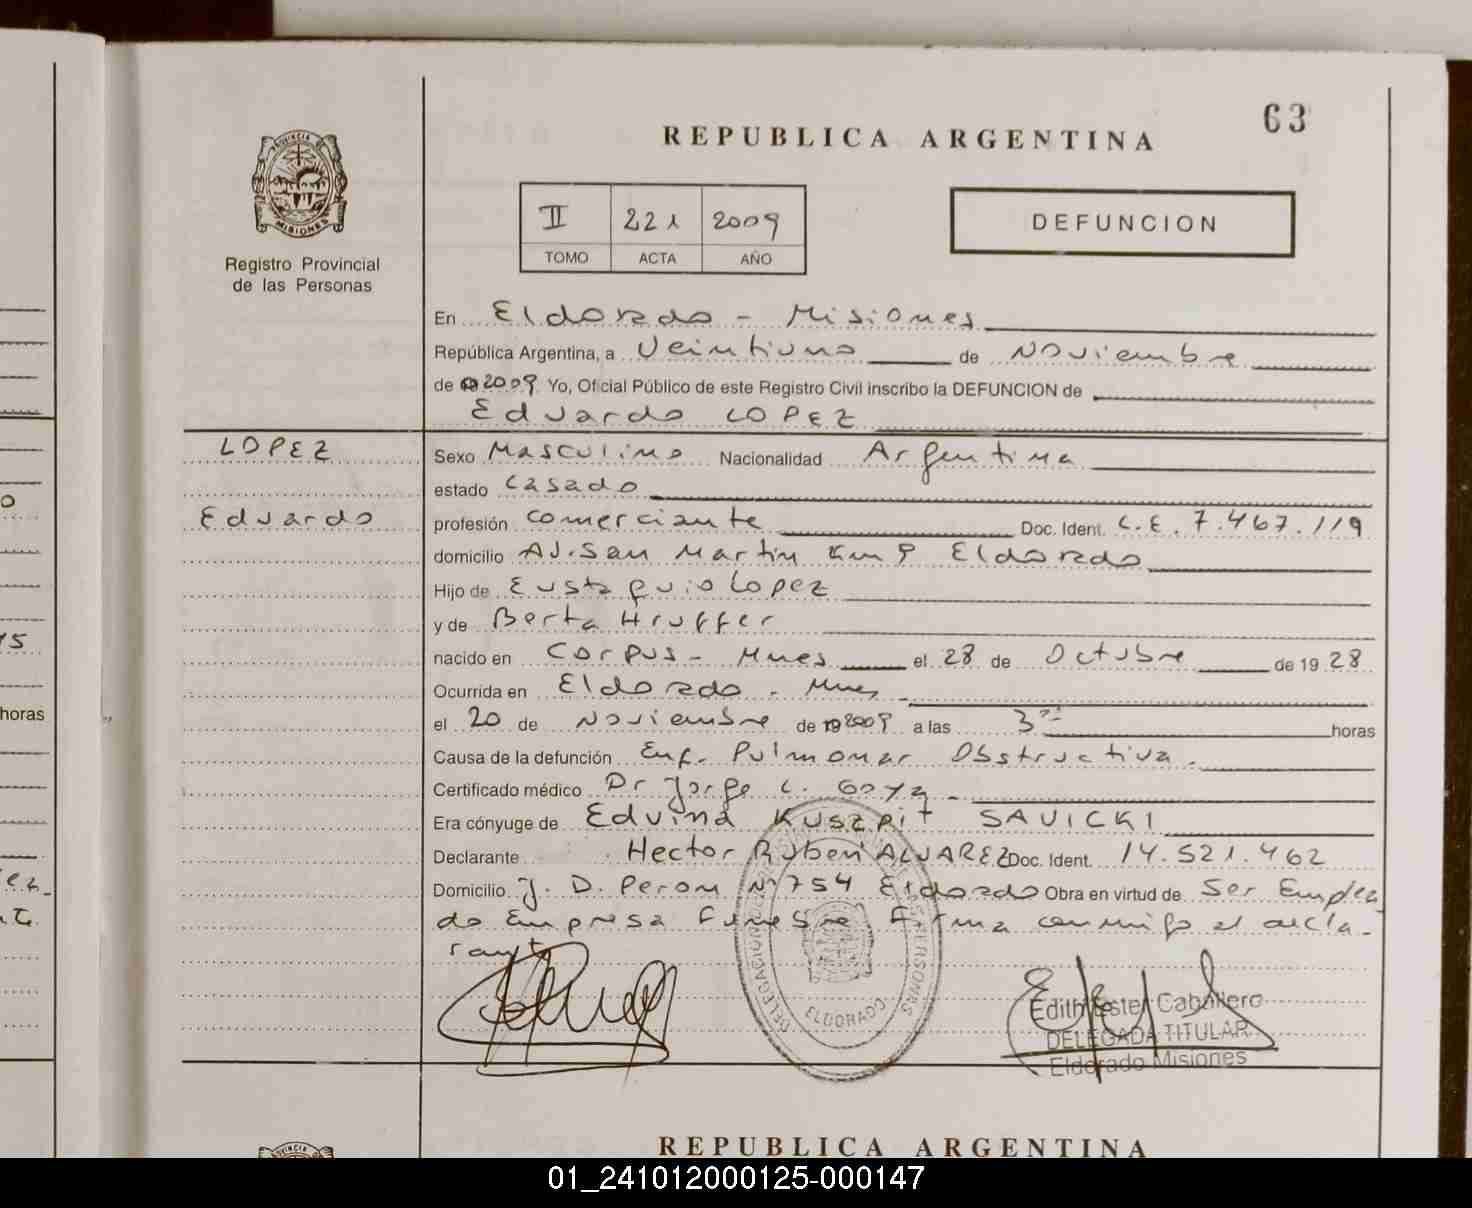 63
REPUBLICA ARGENTINA
PROVINCIA DE
MISIONES
Registro Provincial
de las Personas
II 221 2009
TOMO ACTA AÑO
DEFUNCION
En Eldorado - Misiones
República Argentina, a Veintiuno de Noviembre
de 2009 Yo, Oficial Público de este Registro Civil inscribo la DEFUNCION de
Eduardo LOPEZ
LOPEZ
Eduardo
Sexo Masculino Nacionalidad Argentina
estado Casado
profesión Comerciante Doc. Ident. L.E. 7.467.119
domicilio Av. San Martin Km 9 Eldorado
Hijo de Eustaquio Lopez
y de Berta Hruffer
nacido en Corpus - Mnes el 28 de Octubre de 1928
Ocurrida en Eldorado - Mnes
el 20 de Noviembre de 2009 a las 3 horas
Causa de la defunción Enf. Pulmonar Obstructiva.
Certificado médico Dr Jorge L. Goya
Era cónyuge de Edvina Kuszpit SAVICKI
Declarante Hector Ruben ALVAREZ Doc. Ident. 14.521.462
Domicilio J. D. Peron Nº 754 Eldorado Obra en virtud de Ser Emplea
do Empresa Funebre Firma conmigo el decla-
rante
DELEGACION DE PERSONAS
ELDORADO
Edith Ester Caballero
DELEGADA TITULAR
Eldorado Misiones
REPUBLICA ARGENTINA
o
15
horas
01_241012000125-000147